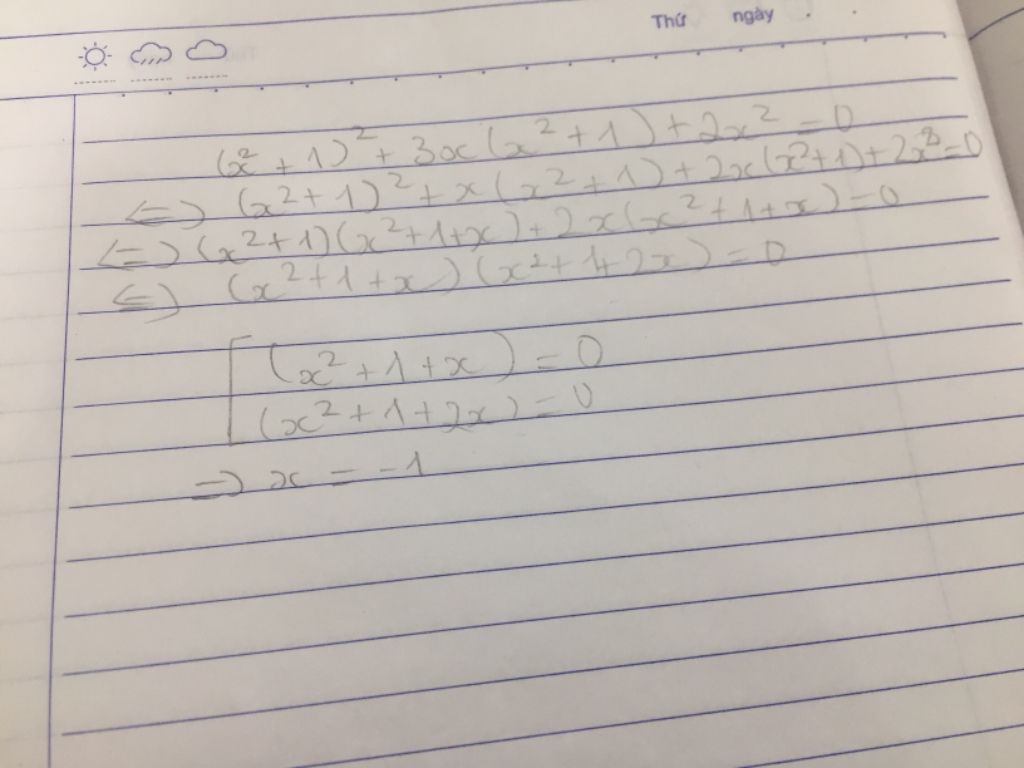 Thứ ngày
(x² + 1)² + 3x(x² + 1) + 2x² = 0
<=> (x² + 1)² + x(x² + 1) + 2x(x² + 1) + 2x² = 0
<=> (x² + 1)(x² + 1 + x) + 2x(x² + 1 + x) = 0
<=> (x² + 1 + x)(x² + 1 + 2x) = 0
[ (x² + 1 + x) = 0
(x² + 1 + 2x) = 0
=> x = -1